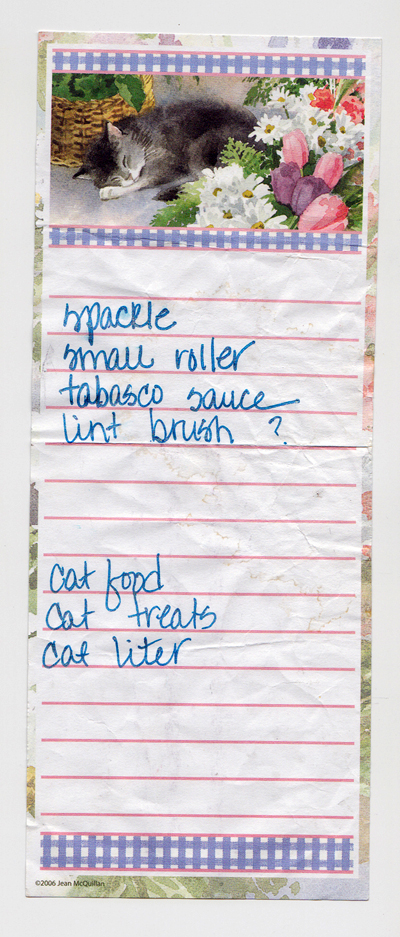 spackle
small roller
tabasco sauce
lint brush ?
cat food
cat treats
cat liter
©2006 Jean McQuillan